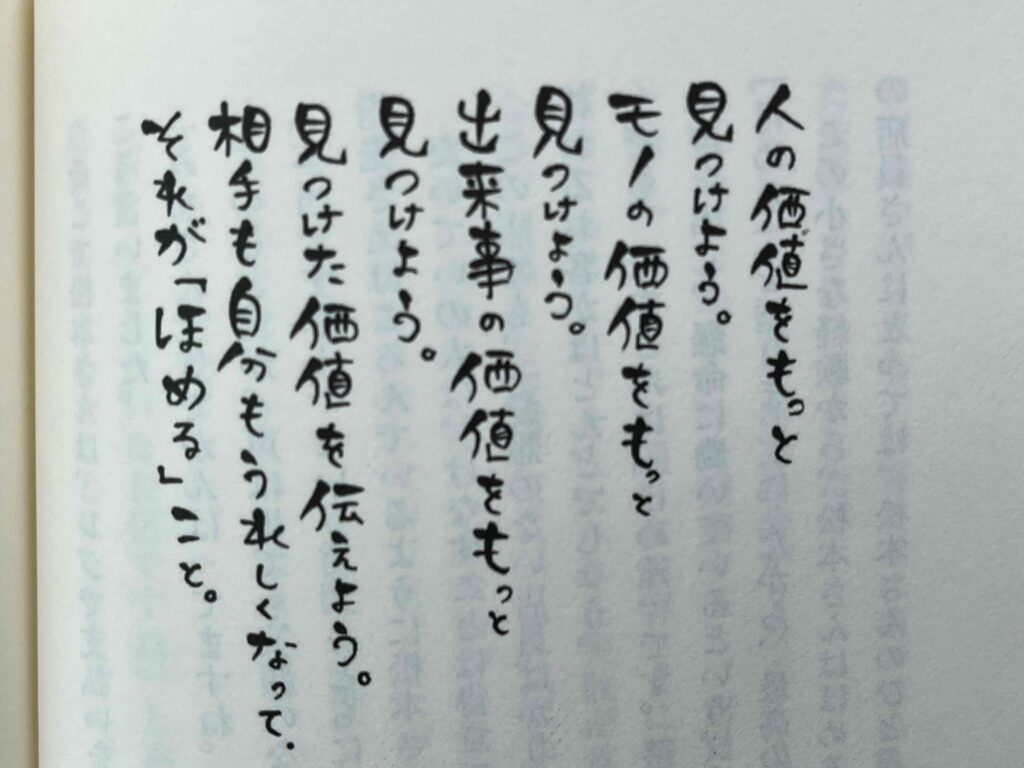 人の価値をもっと
見つけよう。
モノの価値をもっと
見つけよう。
出来事の価値をもっと
見つけよう。
見つけた価値を伝えよう。
相手も自分もうれしくなって、
それが「ほめる」こと。